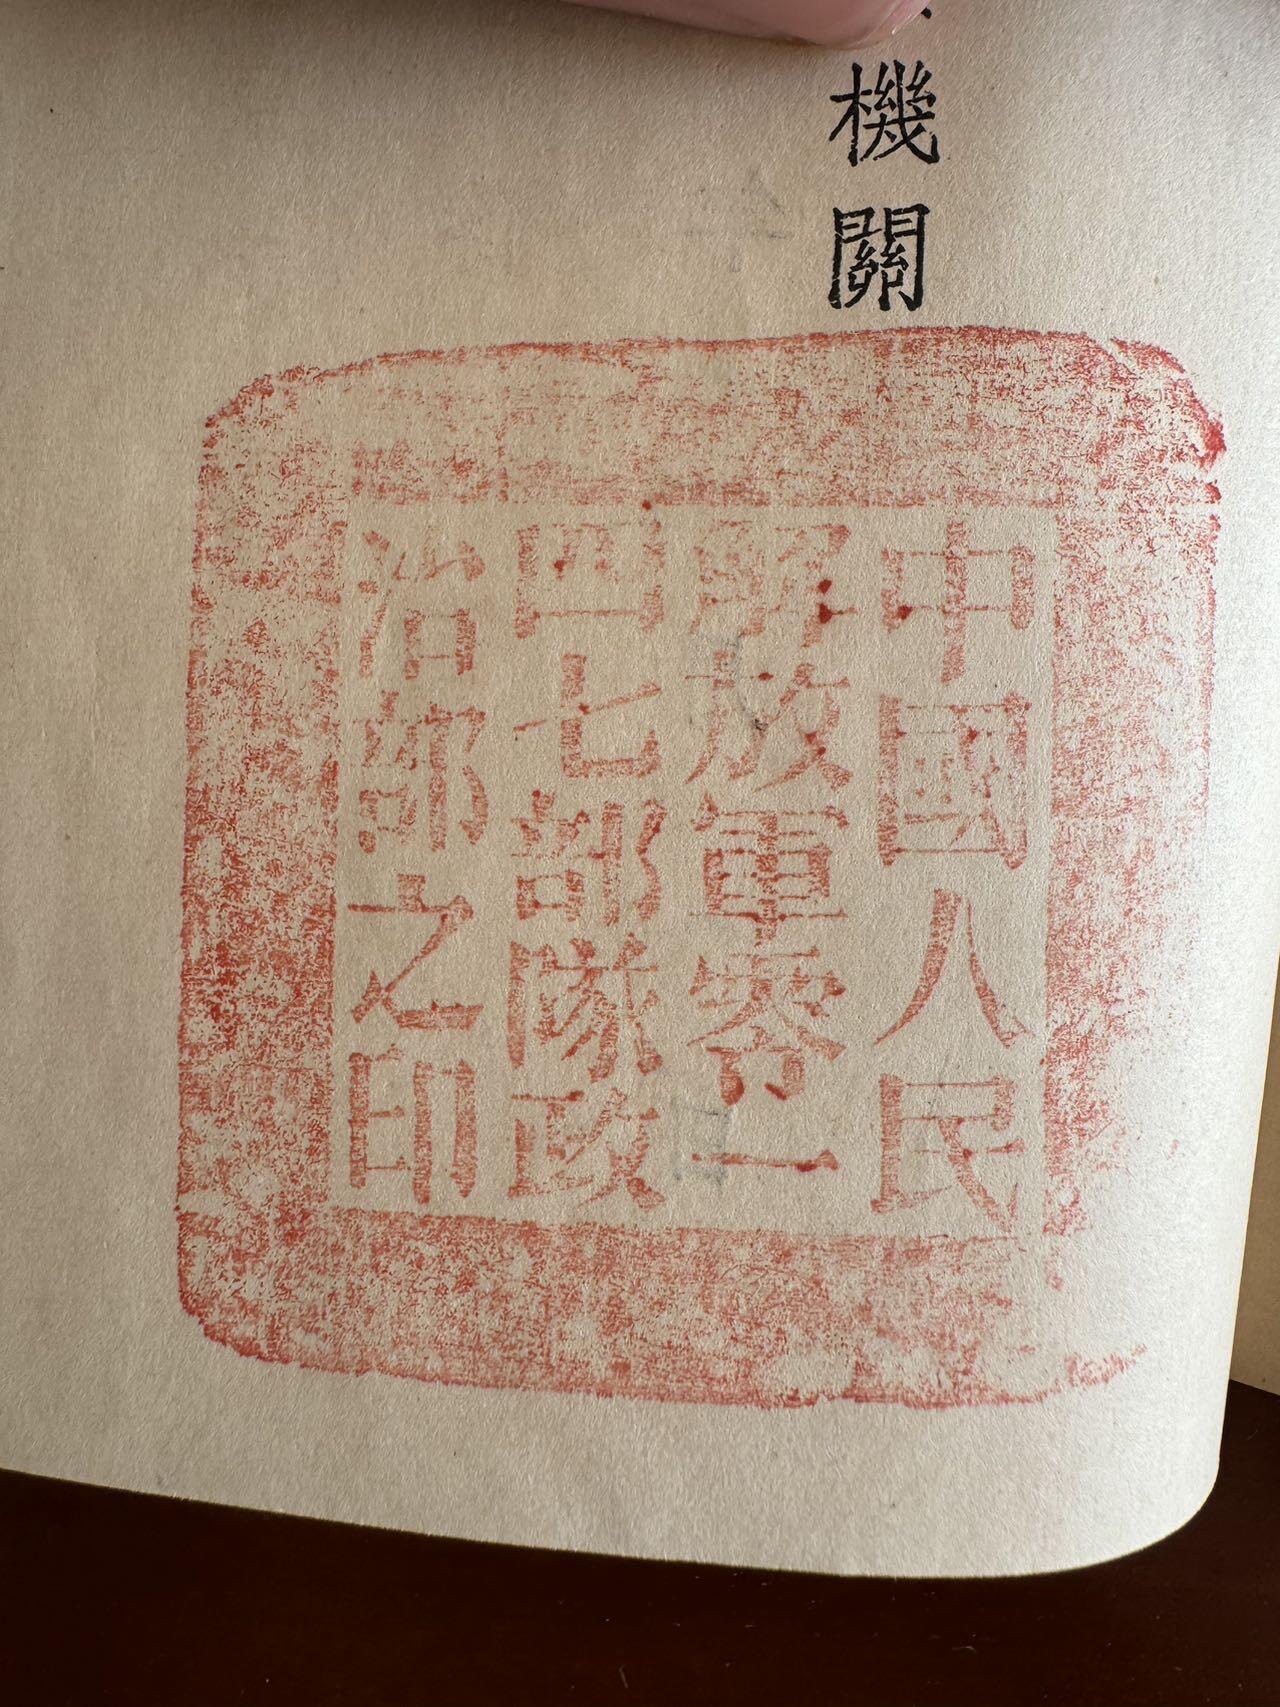 機關
中國人民
解放軍零一
四七部隊政
治部之印